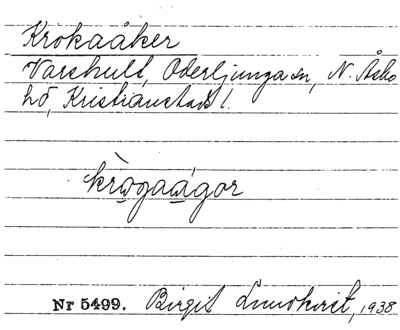 Krokaåker
Varshult, Oderljunga sn, N. Åsbo
hd, Kristianstads l.
krògaágor
Nr 5499. Birgit Lundkvist, 1938